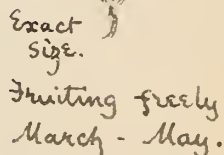 Exact
size.
Fruiting freely
March - May.